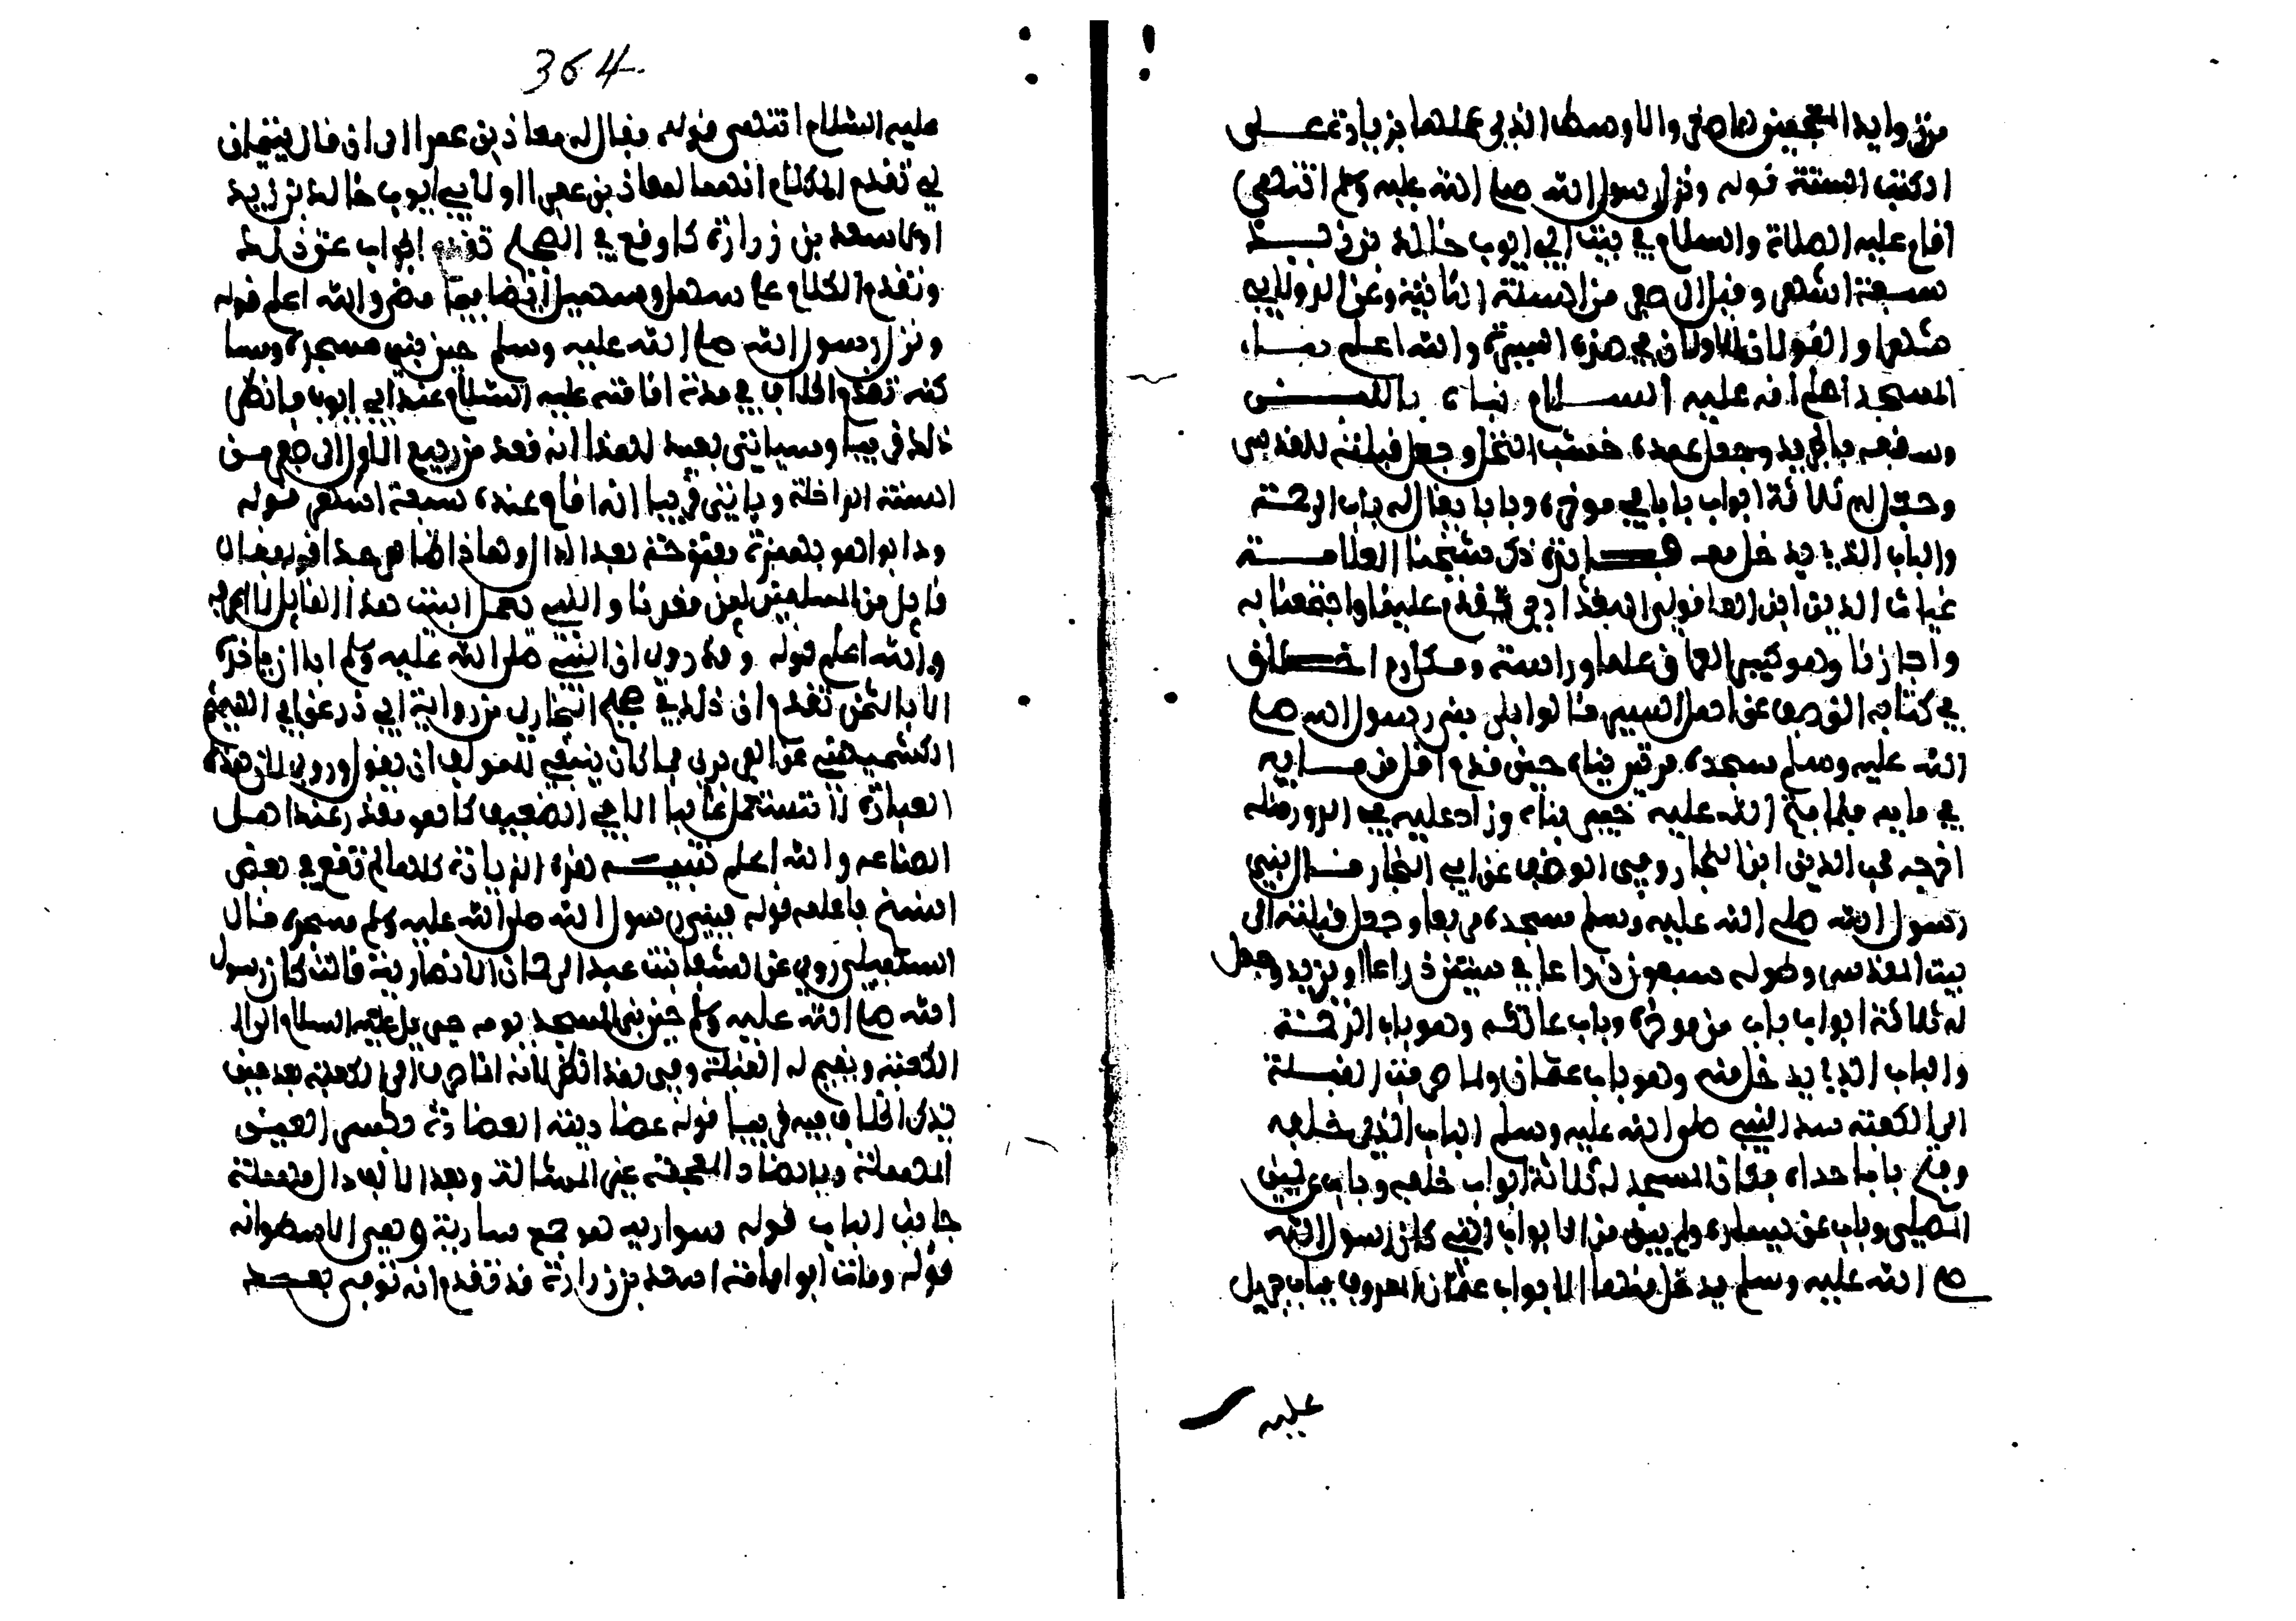 من زوايد المعجمين الاصغر والاوسط الذي عملتها بزيادة على
الكتب الستة قوله ونزل رسول الله صلى الله عليه وسلم انتهى
اقام عليه الصلاة والسلام في بيت ابي ايوب خالد بن زيد
سبعة اشهر وقيل الى صفر من السنة الثانية وعن الدولابي
شهرا والقولان الاولان في هذه السيرة والله اعلم بناء
المسجد اعلم انه عليه السلام بناه باللبن
وسقفه بالجريد وجعل عمده خشب النخل وجعل قبلته للقدس
وجعل له ثلاثة ابواب بابا في موخره وبابا يقال له باب الرحمة
والباب الذي يدخل منه هكذا ذكر شيخنا العلامة
غياث الدين ابن العاقولي البغدادي قدم علينا واجتمعنا به
واجازنا وهو كبير العراق علما ورياسة ومكارم اخلاق
في كتابه الوصف عن اهل السير قالوا بنى رسول الله صلى
الله عليه وسلم مسجده مرتين بناه حين قدم اقل من ماية
في ماية فلما فتح الله عليه خيبر بناه وزاد عليه في الدور مثله
اخرجه محب الدين ابن النجار وفي الوصف عن ابن النجار قال بنى
رسول الله صلى الله عليه وسلم مسجده مربعا وجعل قبلته الى
بيت المقدس وطوله سبعون ذراعا في ستين ذراعا او يزيد وجعل
له ثلاثة ابواب باب من موخره وباب عاتكة وهو باب الرحمة
والباب الذي يدخل منه وهو باب عثمان ولما صرفت القبلة
الى الكعبة سد النبي صلى الله عليه وسلم الباب الذي خلفه
وفتح بابا حذاه فكان المسجد له ثلاثة ابواب خلفه وباب عن يمين
المصلي وباب عن يساره ولم يبق من الابواب التي كان رسول الله
صلى الله عليه وسلم يدخل منها الا باب عثمان المعروف بباب جبريل
عليه
364
عليه السلام انتهى قوله فقال له معاذ بن عفرا الى ان قال يتيمان
لي تقدم الكلام انهما لمعاذ بن عفرا او لابي ايوب خالد بن زيد
او لاسعد بن زرارة كما وقع في الصحيح تقدم الجواب عن ذلك
وتقدم الكلام على سهل وسهيل ايضا فيما مضى والله اعلم قوله
ونزل رسول الله صلى الله عليه وسلم حين بنى مسجده ومسا
كنه تقدم الخلاف في مدة اقامته عليه السلام عند ابي ايوب فانظر
ذلك قريبا وسياتي بعيد هذا انه قعد من ربيع الاول الى صفر من
السنة الداخلة وياتي قريبا انه اقام عنده سبعة اشهر قوله
ودابوا هو بهمزة مفتوحة بعد الدال وهذا ظاهر جدا قوله فقال
قايل من المسلمين لين قعدنا والنبي يعمل البيت هذا القايل لا اعرفه
والله اعلم قوله وقد روي ان النبي صلى الله عليه وسلم ابى ان ياخذه
الا بالثمن تقدم ان ذلك في صحيح البخاري من رواية ابي ذر عن ابي الهيثم
الكشميهني عن الفربري فما كان ينبغي للمولف ان يقول وروي لان هذه
العبارة لا تستعمل غالبا الا في الضعيف كما هو مقرر عند اهل
الصناعة والله اعلم تنبيه هذه الزيادة كلها لم تقع في بعض
النسخ فاعلمه قوله فبنى رسول الله صلى الله عليه وسلم مسجده قال
السهيلي روي عن الشفا بنت عبد الرحمان الانصارية قالت كان رسول
الله صلى الله عليه وسلم حين بنى المسجد يومه جبريل عليه السلام الى
الكعبة ويقيم له القبلة وفي هذا نظر لانه انما صرف الى الكعبة بعد حين
يذكر الخلاف فيه قريبا قوله عضاديته العضادة بكسر العين
المهملة وبالضاد المعجمة غير المشالة وبعد الالف دال مهملة
جانب الباب قوله سواريه هو جمع سارية وهي الاسطوانة
قوله ومات ابو امامة اسعد بن زرارة قد تقدم انه توفي بعد